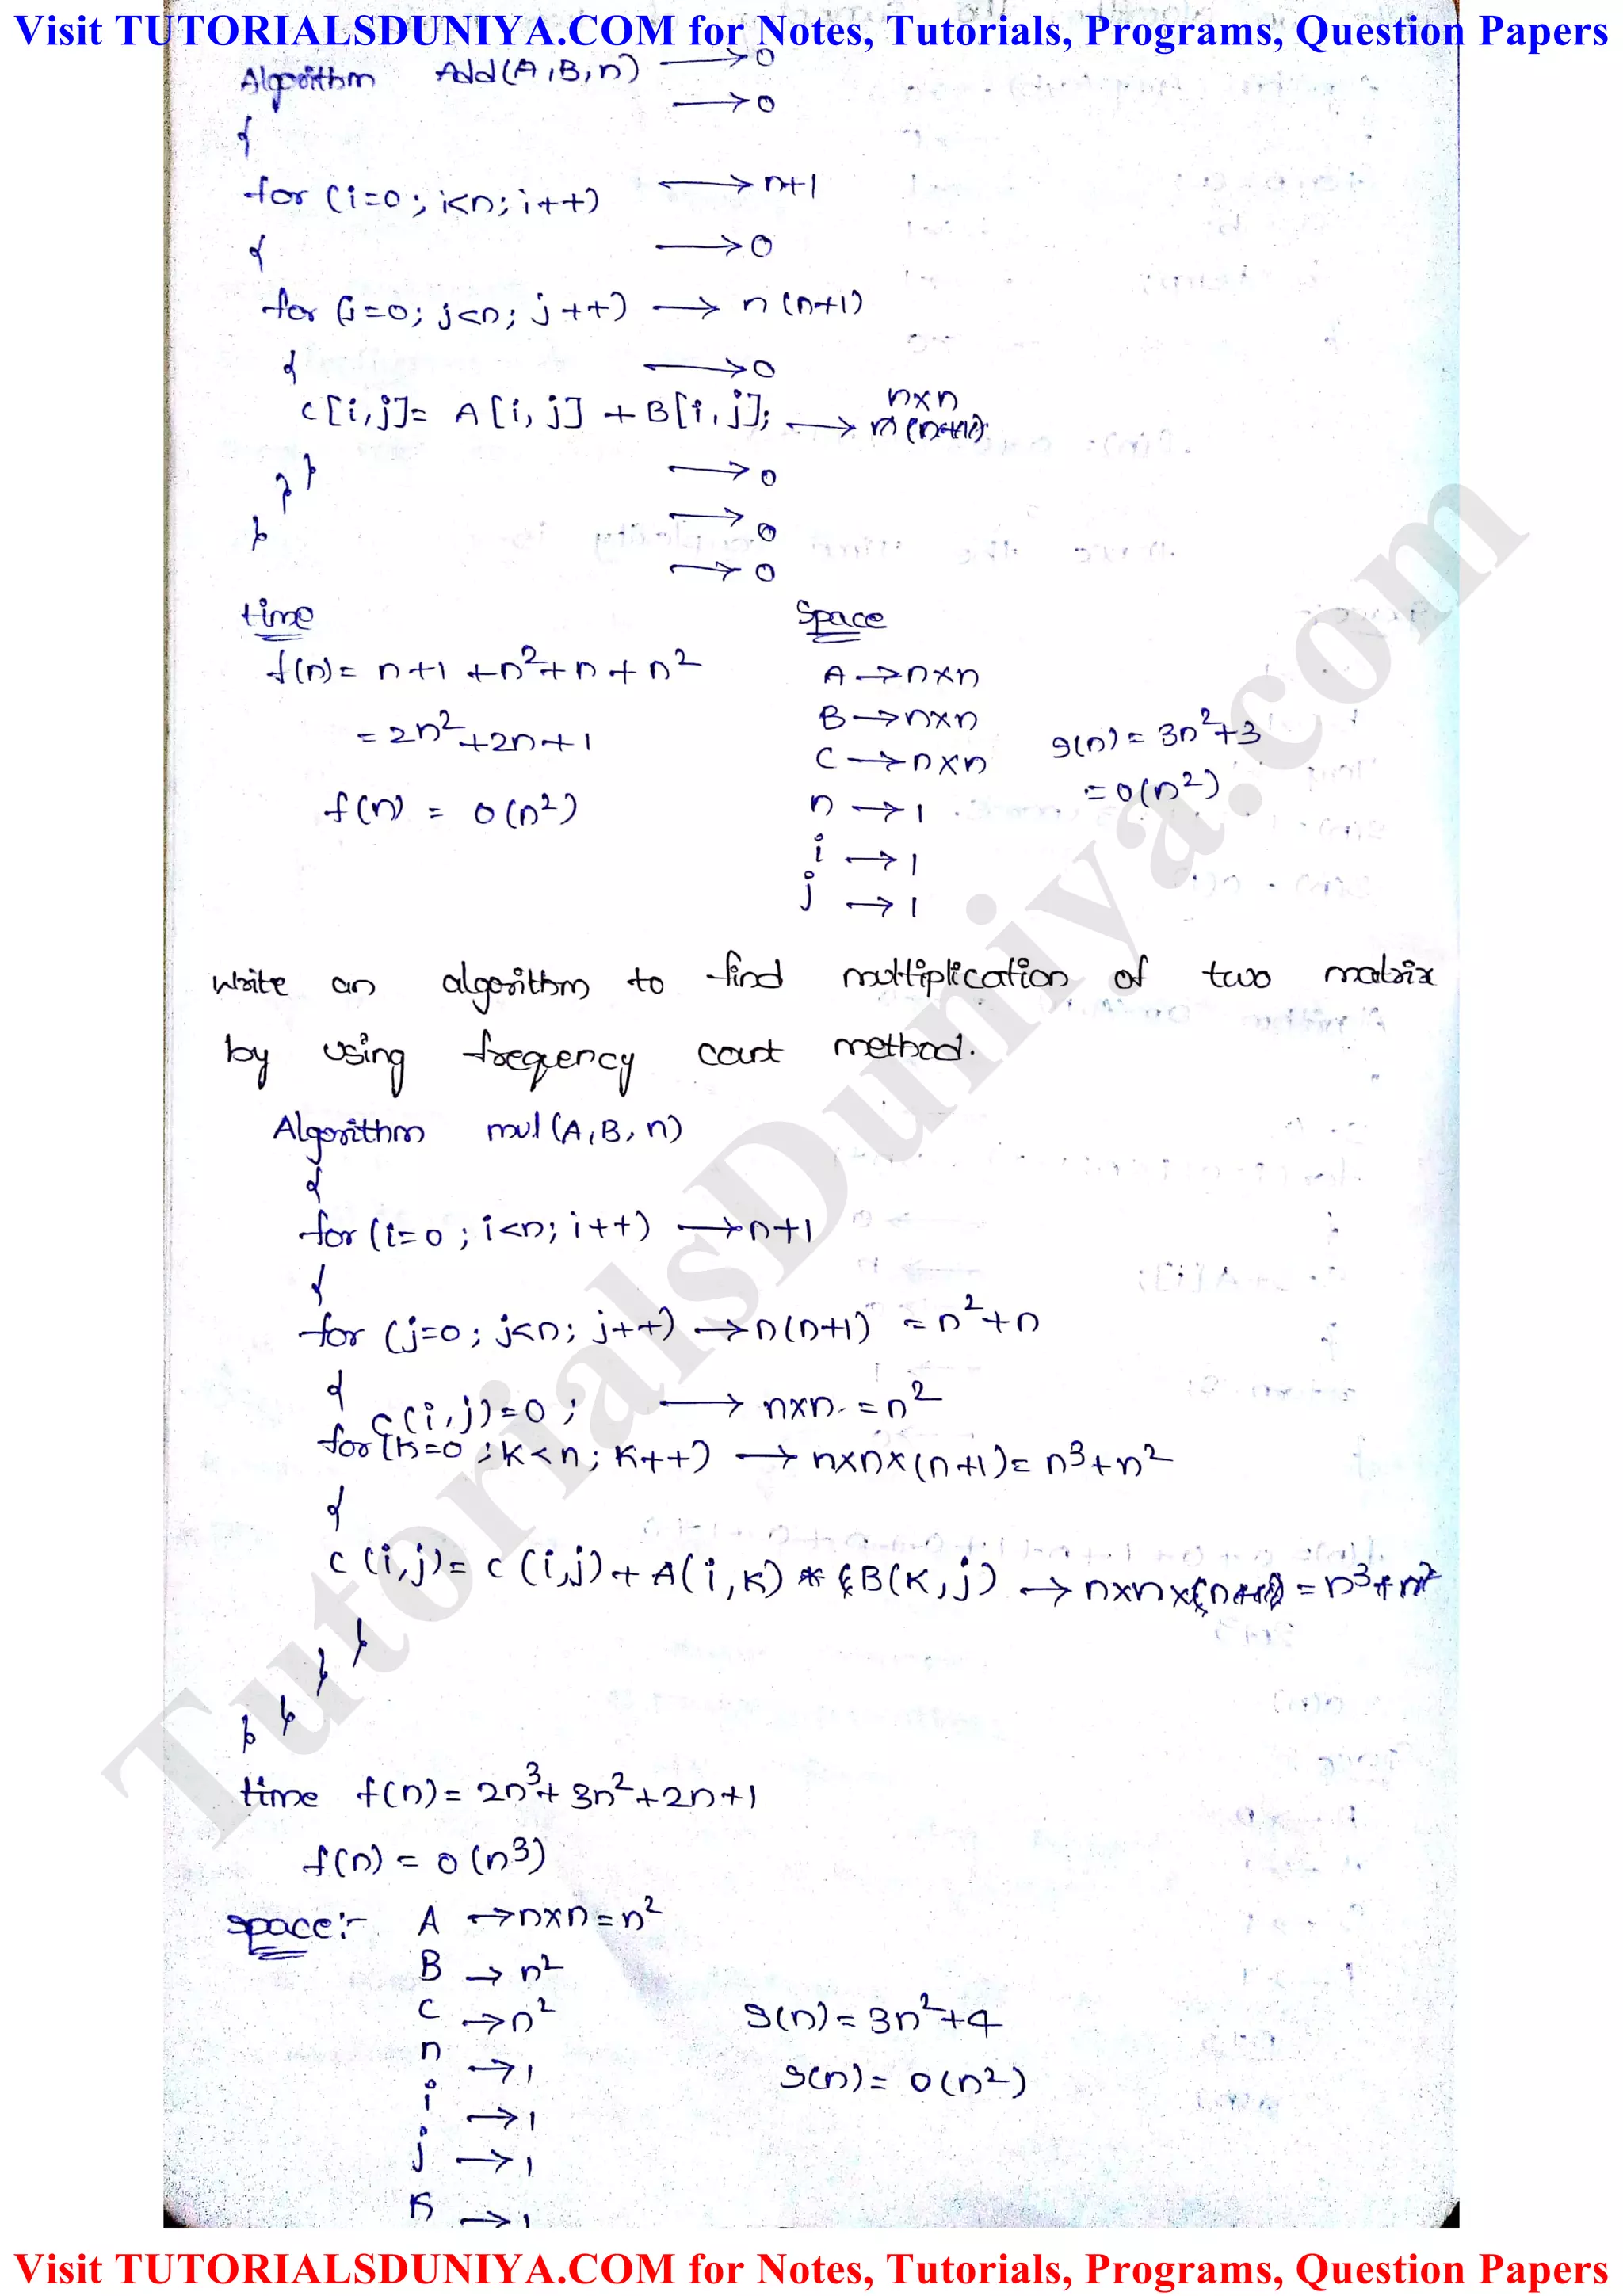 Visit TUTORIALSDUNIYA.COM for Notes, Tutorials, Programs, Question Papers
Algorithm Add(A,B,n) → 0
→ 0
{
for (i=0; i<n; i++) → n+1
{ → 0
for (j=0; j<n; j++) → n(n+1)
{ → 0
n×n
C[i,j]= A[i,j] + B[i,j]; →
} } → 0
} → 0
→ 0
time Space
f(n)= n+1 +n²+n+n²
= 2n²+2n+1
f(n) = O(n²)
A → n×n
B → n×n
C → n×n
n → 1
i → 1
j → 1
S(n) = 3n²+3
= O(n²)
Write an algorithm to find multiplication of two matrix
by using frequency count method.
Algorithm mul(A,B,n)
{
for (i=0; i<n; i++) → n+1
{
for (j=0; j<n; j++) → n(n+1) = n²+n
{
C(i,j)=0; → n×n = n²
for (k=0; k<n; k++) → n×n×(n+1)= n³+n²
{
C(i,j)= C(i,j)+A(i,k) * B(k,j) → n×n×n = n³
}
}
}
}
time f(n)= 2n³+3n²+2n+1
f(n) = O(n³)
space:- A → n×n=n²
B → n²
C → n²
n → 1
i → 1
j → 1
k → 1
S(n)= 3n²+4
S(n)= O(n²)
TutorialsDuniya.com
Visit TUTORIALSDUNIYA.COM for Notes, Tutorials, Programs, Question Papers